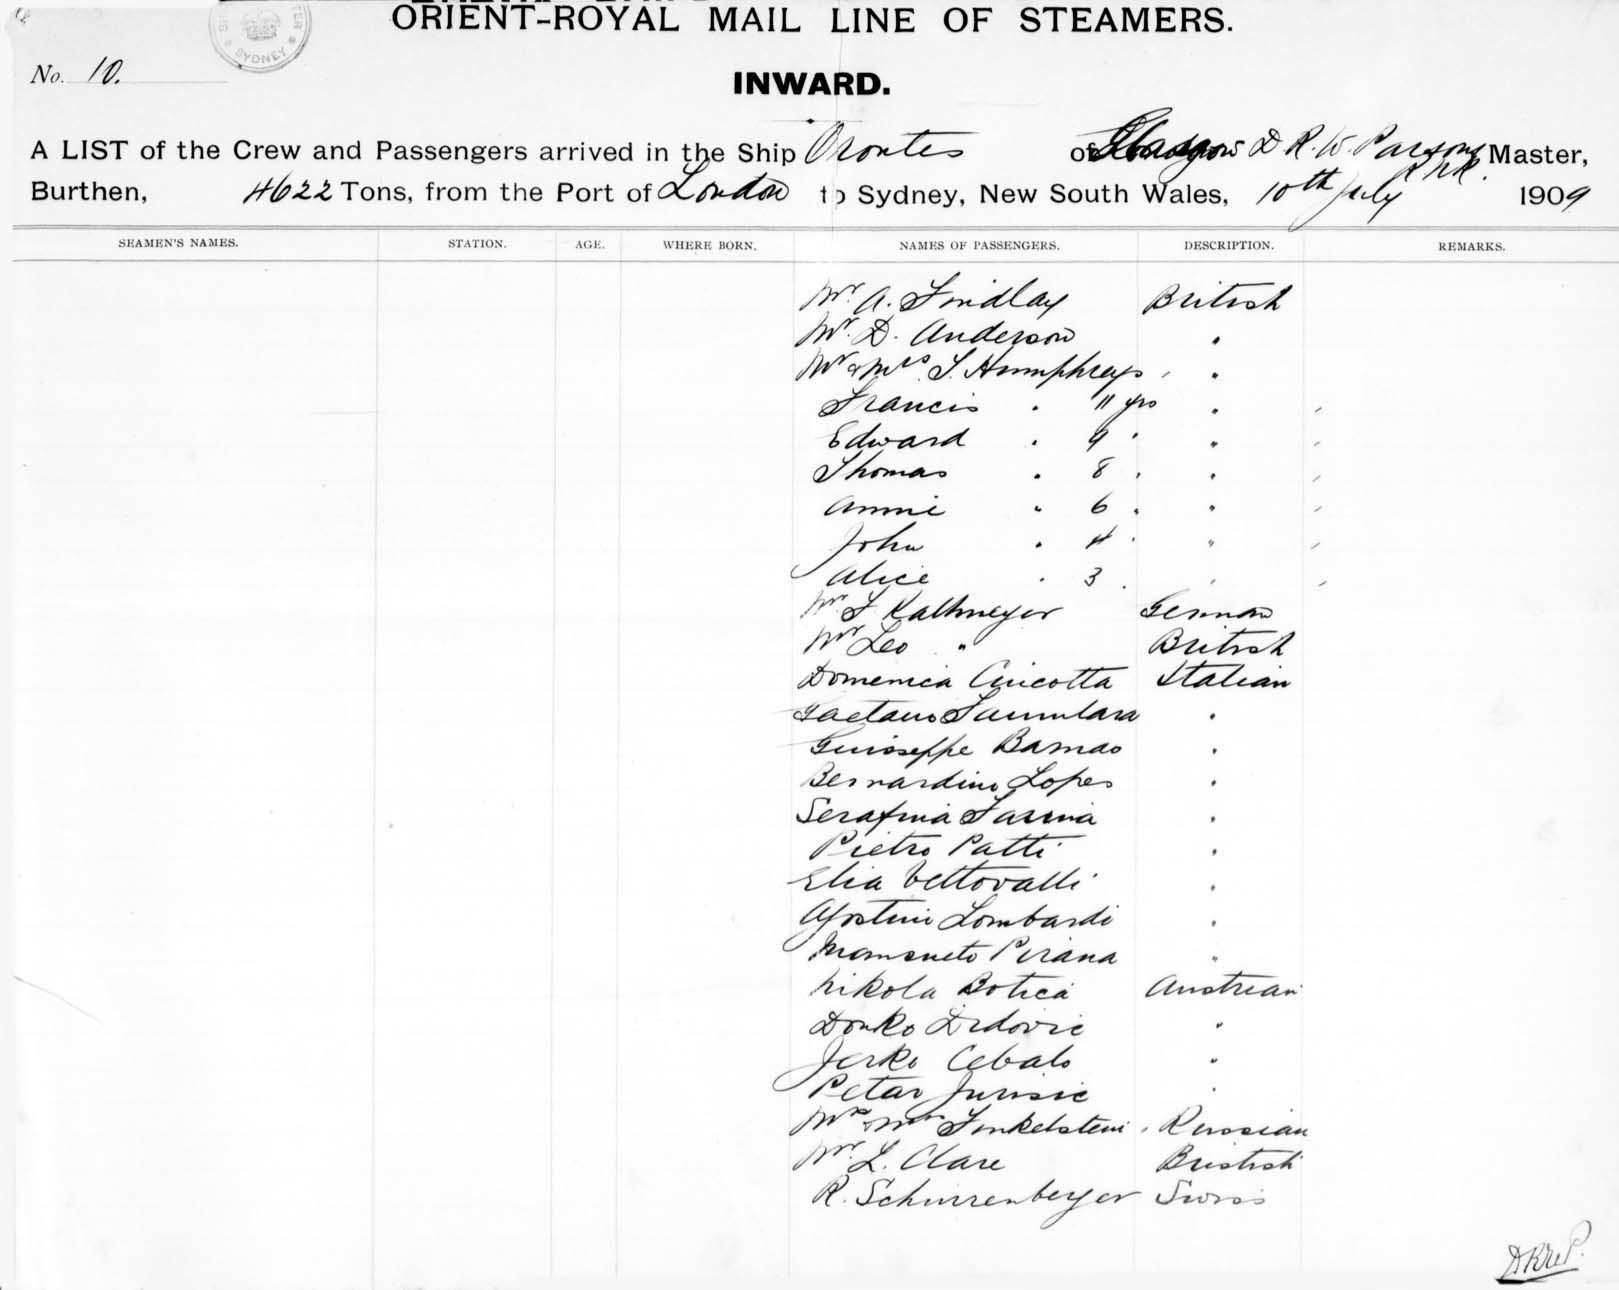 ORIENT-ROYAL MAIL LINE OF STEAMERS.
SYDNEY
No. 10.
INWARD.
A LIST of the Crew and Passengers arrived in the Ship Orontes of Glasgow D R. W. Parsons RNR. Master,
Burthen, 4622 Tons, from the Port of London to Sydney, New South Wales, 10th July 1909
SEAMEN'S NAMES. STATION. AGE. WHERE BORN. NAMES OF PASSENGERS. DESCRIPTION. REMARKS.
Mr. A. Findlay British
Mr. D. Anderson "
Mr & Mrs. T. Humphreys "
Francis " 11 yrs "
Edward " 9 " "
Thomas " 8 " "
Annie " 6 " "
John " 4 " "
Alice " 3 " "
Mr F. Kathmeyer German
Mr Leo " British
Domenica Cincotta Italian
Gaetano "
Guisseppe Barnao "
Bernardino Lopes "
Serafina Farina "
Pietro Patti "
Elia Vettovalli "
Agostini Lombardi "
Mansueto Pirana "
Nikola Botica Austrian
Donko Didovic "
Jerko Cebalo "
Petar Jurisic "
Mr & Mrs Finkelstein Russian
Mr. L. Clare Bristish
R. Schurrenberger Swiss
DRWP.